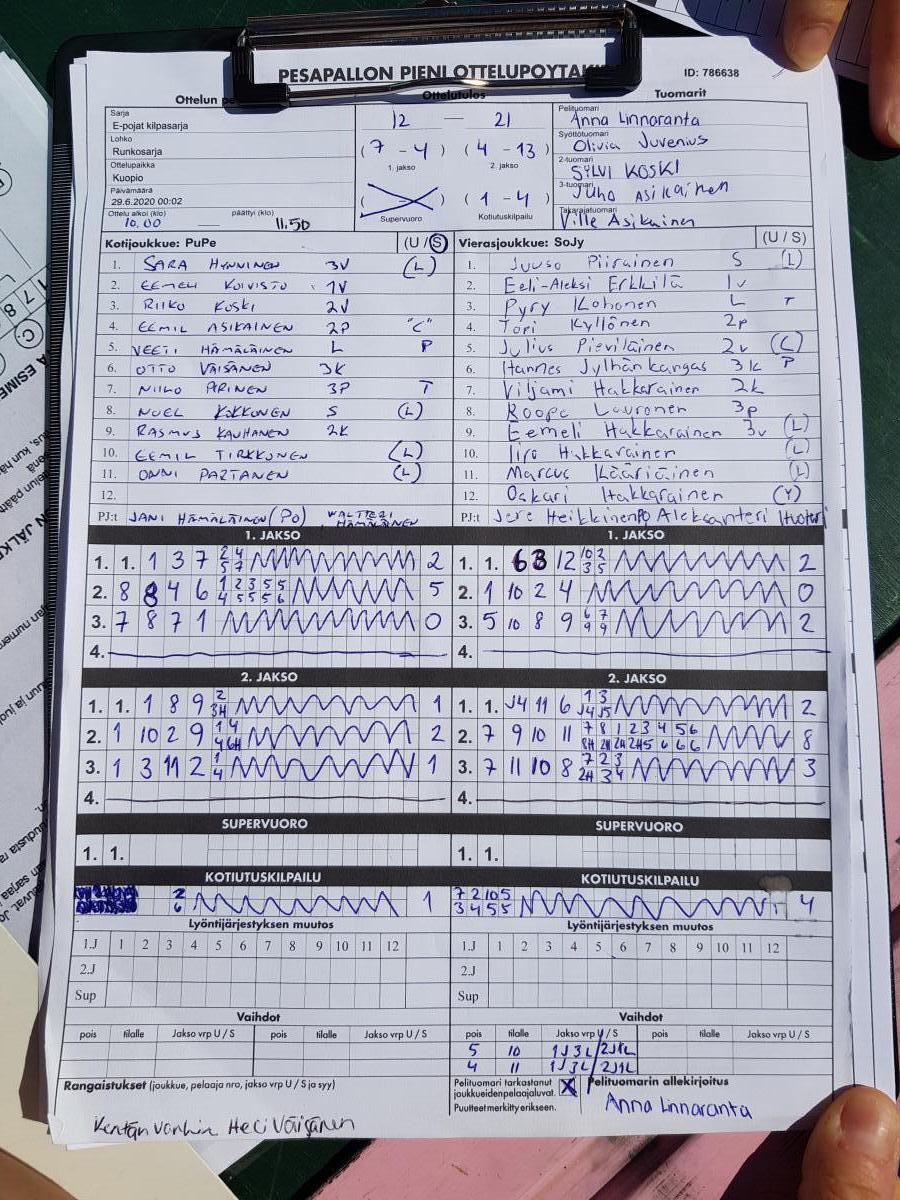 PESAPALLON PIENI OTTELUPOYTAK
ID: 786638
Ottelun
Ottelutulos
Tuomarit
Sarja
E-pojat kilpasarja
Lohko
Runkosarja
Ottelupaikka
Kuopio
Päivämäärä
29.6.2020 00:02
Ottelu alkoi (klo) päättyi (klo)
10.00 — 11.50
12 — 21
(7 - 4) (4 - 13)
1. jakso 2. jakso
( - ) (1 - 4)
Supervuoro Kotiutuskilpailu
Pelituomari
Anna Linnaranta
Syöttötuomari
Olivia Juvenius
2-tuomari
SYLVI KOSKI
3-tuomari
Juho Asikainen
Takarajatuomari
Ville Asikainen
Kotijoukkue: PuPe (U / S)
1. SARA HYNNINEN 3V (L)
2. EEMELI KOIVISTO 1V
3. RIIKO KOSKI 2V
4. EEMIL ASIKAINEN 2P "C"
5. VEETI HÄMÄLÄINEN L P
6. OTTO VÄISÄNEN 3K
7. NIILO PIRINEN 3P T
8. NOEL KOKKONEN S (L)
9. RASMUS KAUHANEN 2K
10. EEMIL TIRKKONEN (L)
11. ONNI PARTANEN (L)
12.
PJ:t JANI HÄMÄLÄINEN (PO) WALTTERI HÄMÄLÄINEN
Vierasjoukkue: SoJy (U / S)
1. Juuso Piirainen S (L)
2. Eeli-Aleksi Erkkilä 1v
3. Pyry Kohonen L T
4. Topi Kyllönen 2p
5. Julius Pieviläinen 2v (L)
6. Hannes Jylhänkangas 3k P
7. Viljami Hakkarainen 2k
8. Roope Louronen 3p
9. Eemeli Hakkarainen 3v (L)
10. Iiro Hakkarainen (L)
11. Marcus Kääriäinen (L)
12. Oskari Hakkarainen (Y)
PJ:t Jere Heikkinen PO Aleksanteri Huoteri
1. JAKSO
1. 1. 1 3 7 2 4 2
5 7
2. 8 8 4 6 1 2 3 5 5 5
4 5 5 5 6
3. 7 8 7 1 0
4.
1. JAKSO
1. 1. 63 12 10 2 2
3 5
2. 1 10 2 4 0
3. 5 10 8 9 6 7 2
9 9
4.
2. JAKSO
1. 1. 1 8 9 2 1
3H
2. 1 10 2 9 1 4 2
4 6H
3. 1 3 11 2 1 1
4
4.
2. JAKSO
1. 1. J4 11 6 1 3 2
J4 J5
2. 7 9 10 11 7 8 1 2 3 4 5 6 8
8H 2H 2H 2H 5 6 6 6
3. 7 11 10 8 7 2 3 3
2H 3 4
4.
SUPERVUORO
1. 1.
SUPERVUORO
1. 1.
KOTIUTUSKILPAILU
2 1
6
KOTIUTUSKILPAILU
7 2 10 5 4
3 4 5 5
Lyöntijärjestyksen muutos
1.J 1 2 3 4 5 6 7 8 9 10 11 12
2.J
Sup
Lyöntijärjestyksen muutos
1.J 1 2 3 4 5 6 7 8 9 10 11 12
2.J
Sup
Vaihdot
pois tilalle Jakso vrp U / S pois tilalle Jakso vrp U / S
Vaihdot
pois tilalle Jakso vrp U / S pois tilalle Jakso vrp U / S
5 10 1J3L/2J1L
4 11 1J3L/2J1L
Rangaistukset (joukkue, pelaaja nro, jakso vrp U / S ja syy)
Kentän vanhin Heli Väisänen
Pelituomari tarkastanut
joukkueiden pelaajaluvat. X
Puutteet merkitty erikseen.
Pelituomarin allekirjoitus
Anna Linnaranta